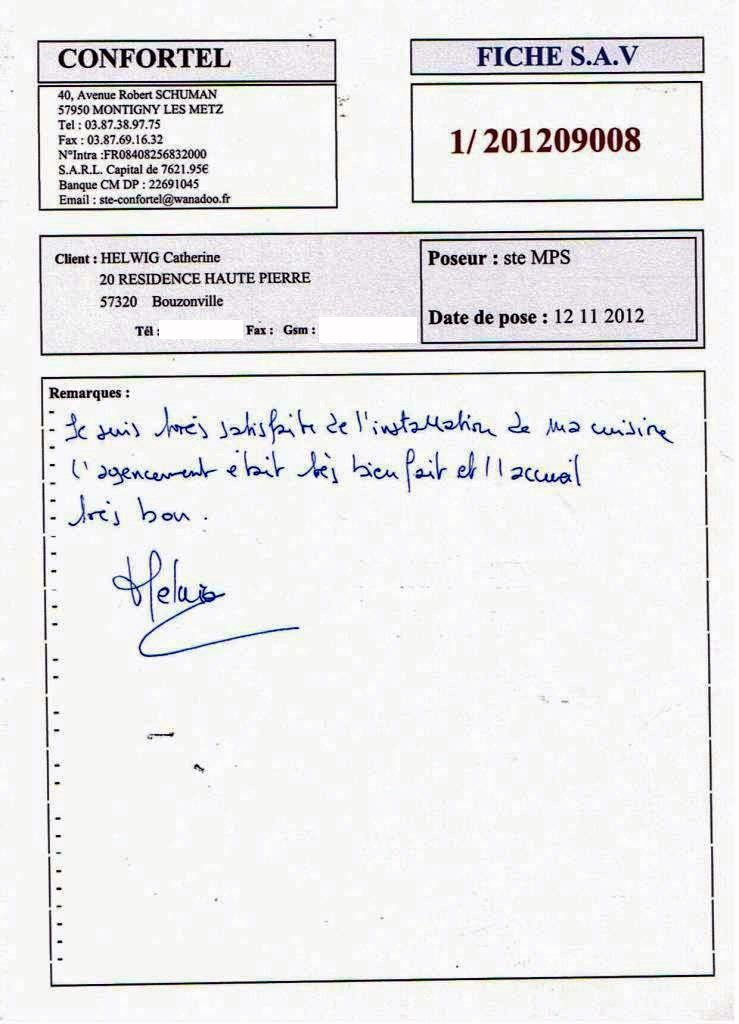 CONFORTEL
40, Avenue Robert SCHUMAN
57950 MONTIGNY LES METZ
Tel : 03.87.38.97.75
Fax : 03.87.69.16.32
N°Intra :FR08408256832000
S.A.R.L. Capital de 7621.95€
Banque CM DP : 22691045
Email : ste-confortel@wanadoo.fr
FICHE S.A.V
1/ 201209008
Client : HELWIG Catherine
20 RESIDENCE HAUTE PIERRE
57320 Bouzonville
Tél : Fax : Gsm :
Poseur : ste MPS
Date de pose : 12 11 2012
Remarques :
Je suis très satisfaite de l'installation de ma cuisine
l'agencement était très bien fait et l'accueil
très bon.
Helwig